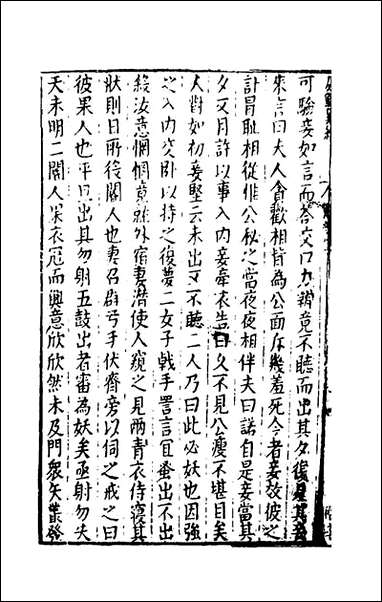 可驗妾如言而答交口力辯竟不聽而出其夕復見其妾
來言曰夫人貪歡相背為公面斥幾羞死今者妾故彼之
計冐耻相從惟公秘之當夜夜相伴夫曰諾自是妾當其
夕又月許以事入内妾牽衣告曰久不見公瘦不堪目矣
人對如初妾堅云未出又不聽二人乃曰此必妖也因強
之入内交卧以持之復夢二女子戟手詈言宜番出不出
殺汝意惘惘竟趂外宿妻潜使人窺之見兩青衣侍寢其
狀則日所後閣人也妻召群弓手伏齋旁以伺之戒之曰
彼果人也平旦出其勿射五鼓出者審為妖矣亟射勿失
天未明二閣人杲衣冠而興意欣欣然未及門衆矢叢發